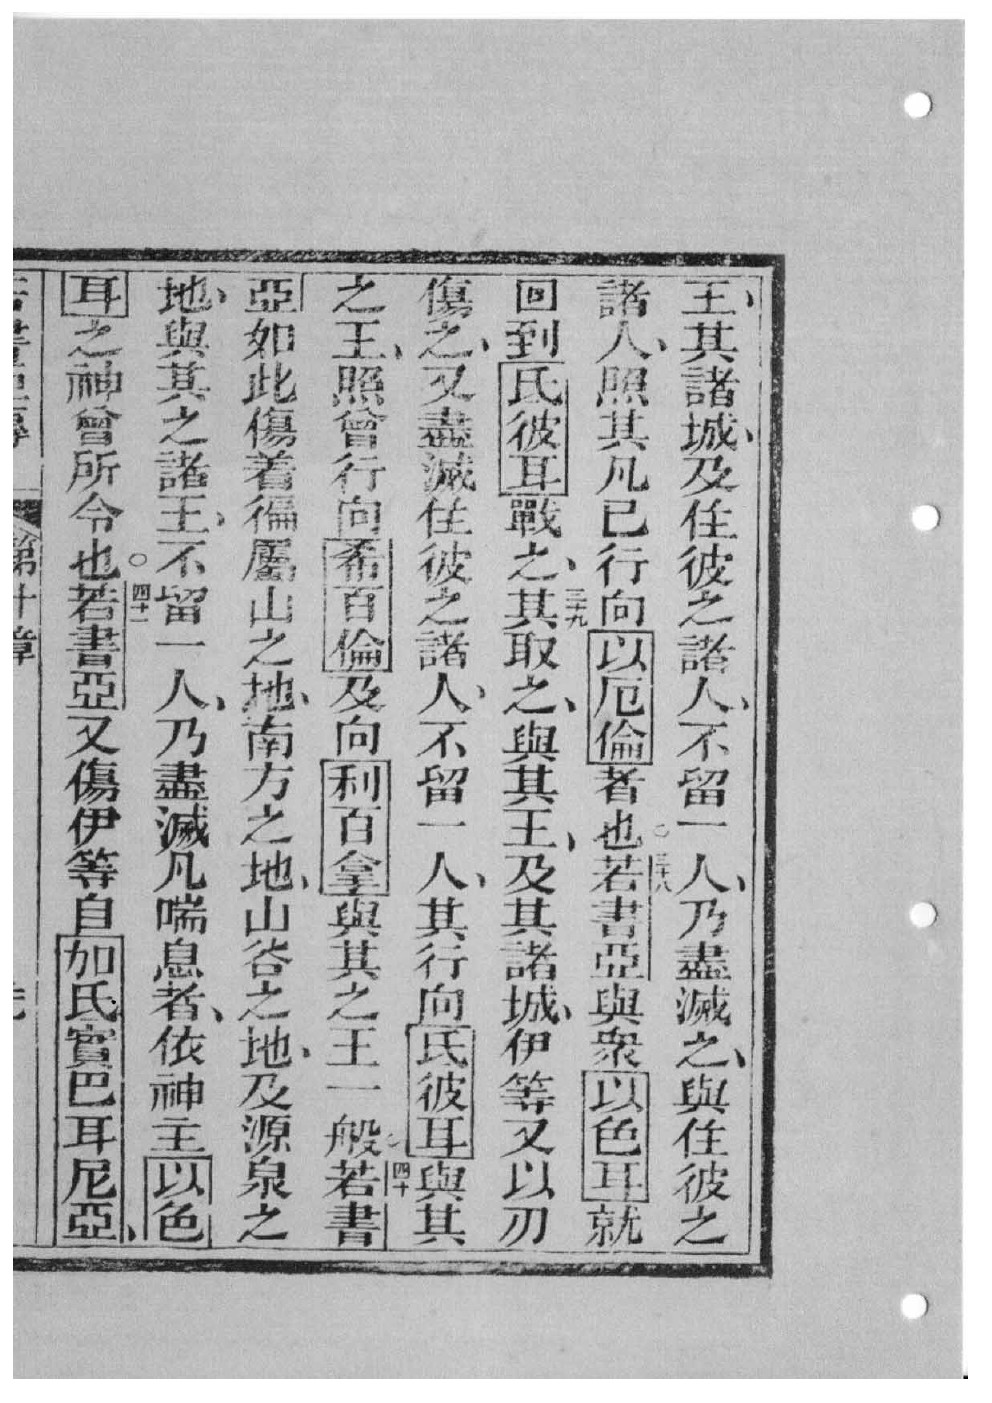 王、其諸城、及住彼之諸人、不留一人、乃盡滅之、與住彼之
諸人、照其凡已行向以厄倫者也○三十八若書亞與衆以色耳就
回到氏彼耳戰之、三十九其取之、與其王、及其諸城、伊等又以刃
傷之、又盡滅住彼之諸人、不留一人、其行向氏彼耳與其
之王、照曾行向希百倫及向利百拿與其之王一般四十若書
亞如此傷着徧屬山之地、南方之地、山谷之地、及源泉之
地、與其之諸王、不留一人、乃盡滅凡喘息者、依神主以色
耳之神曾所令也○四十一若書亞又傷伊等自加氏實巴耳尼亞、
第十章